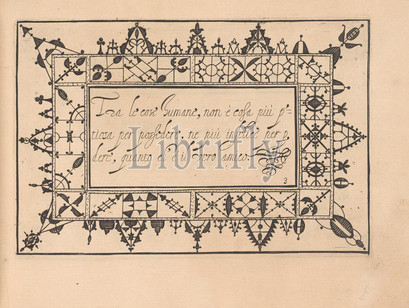 Tra le cose humane, non è cosa più p-
tiosa per possedere, ne più infelice per p-
dere, quanto el vero amico.
3
Librifly